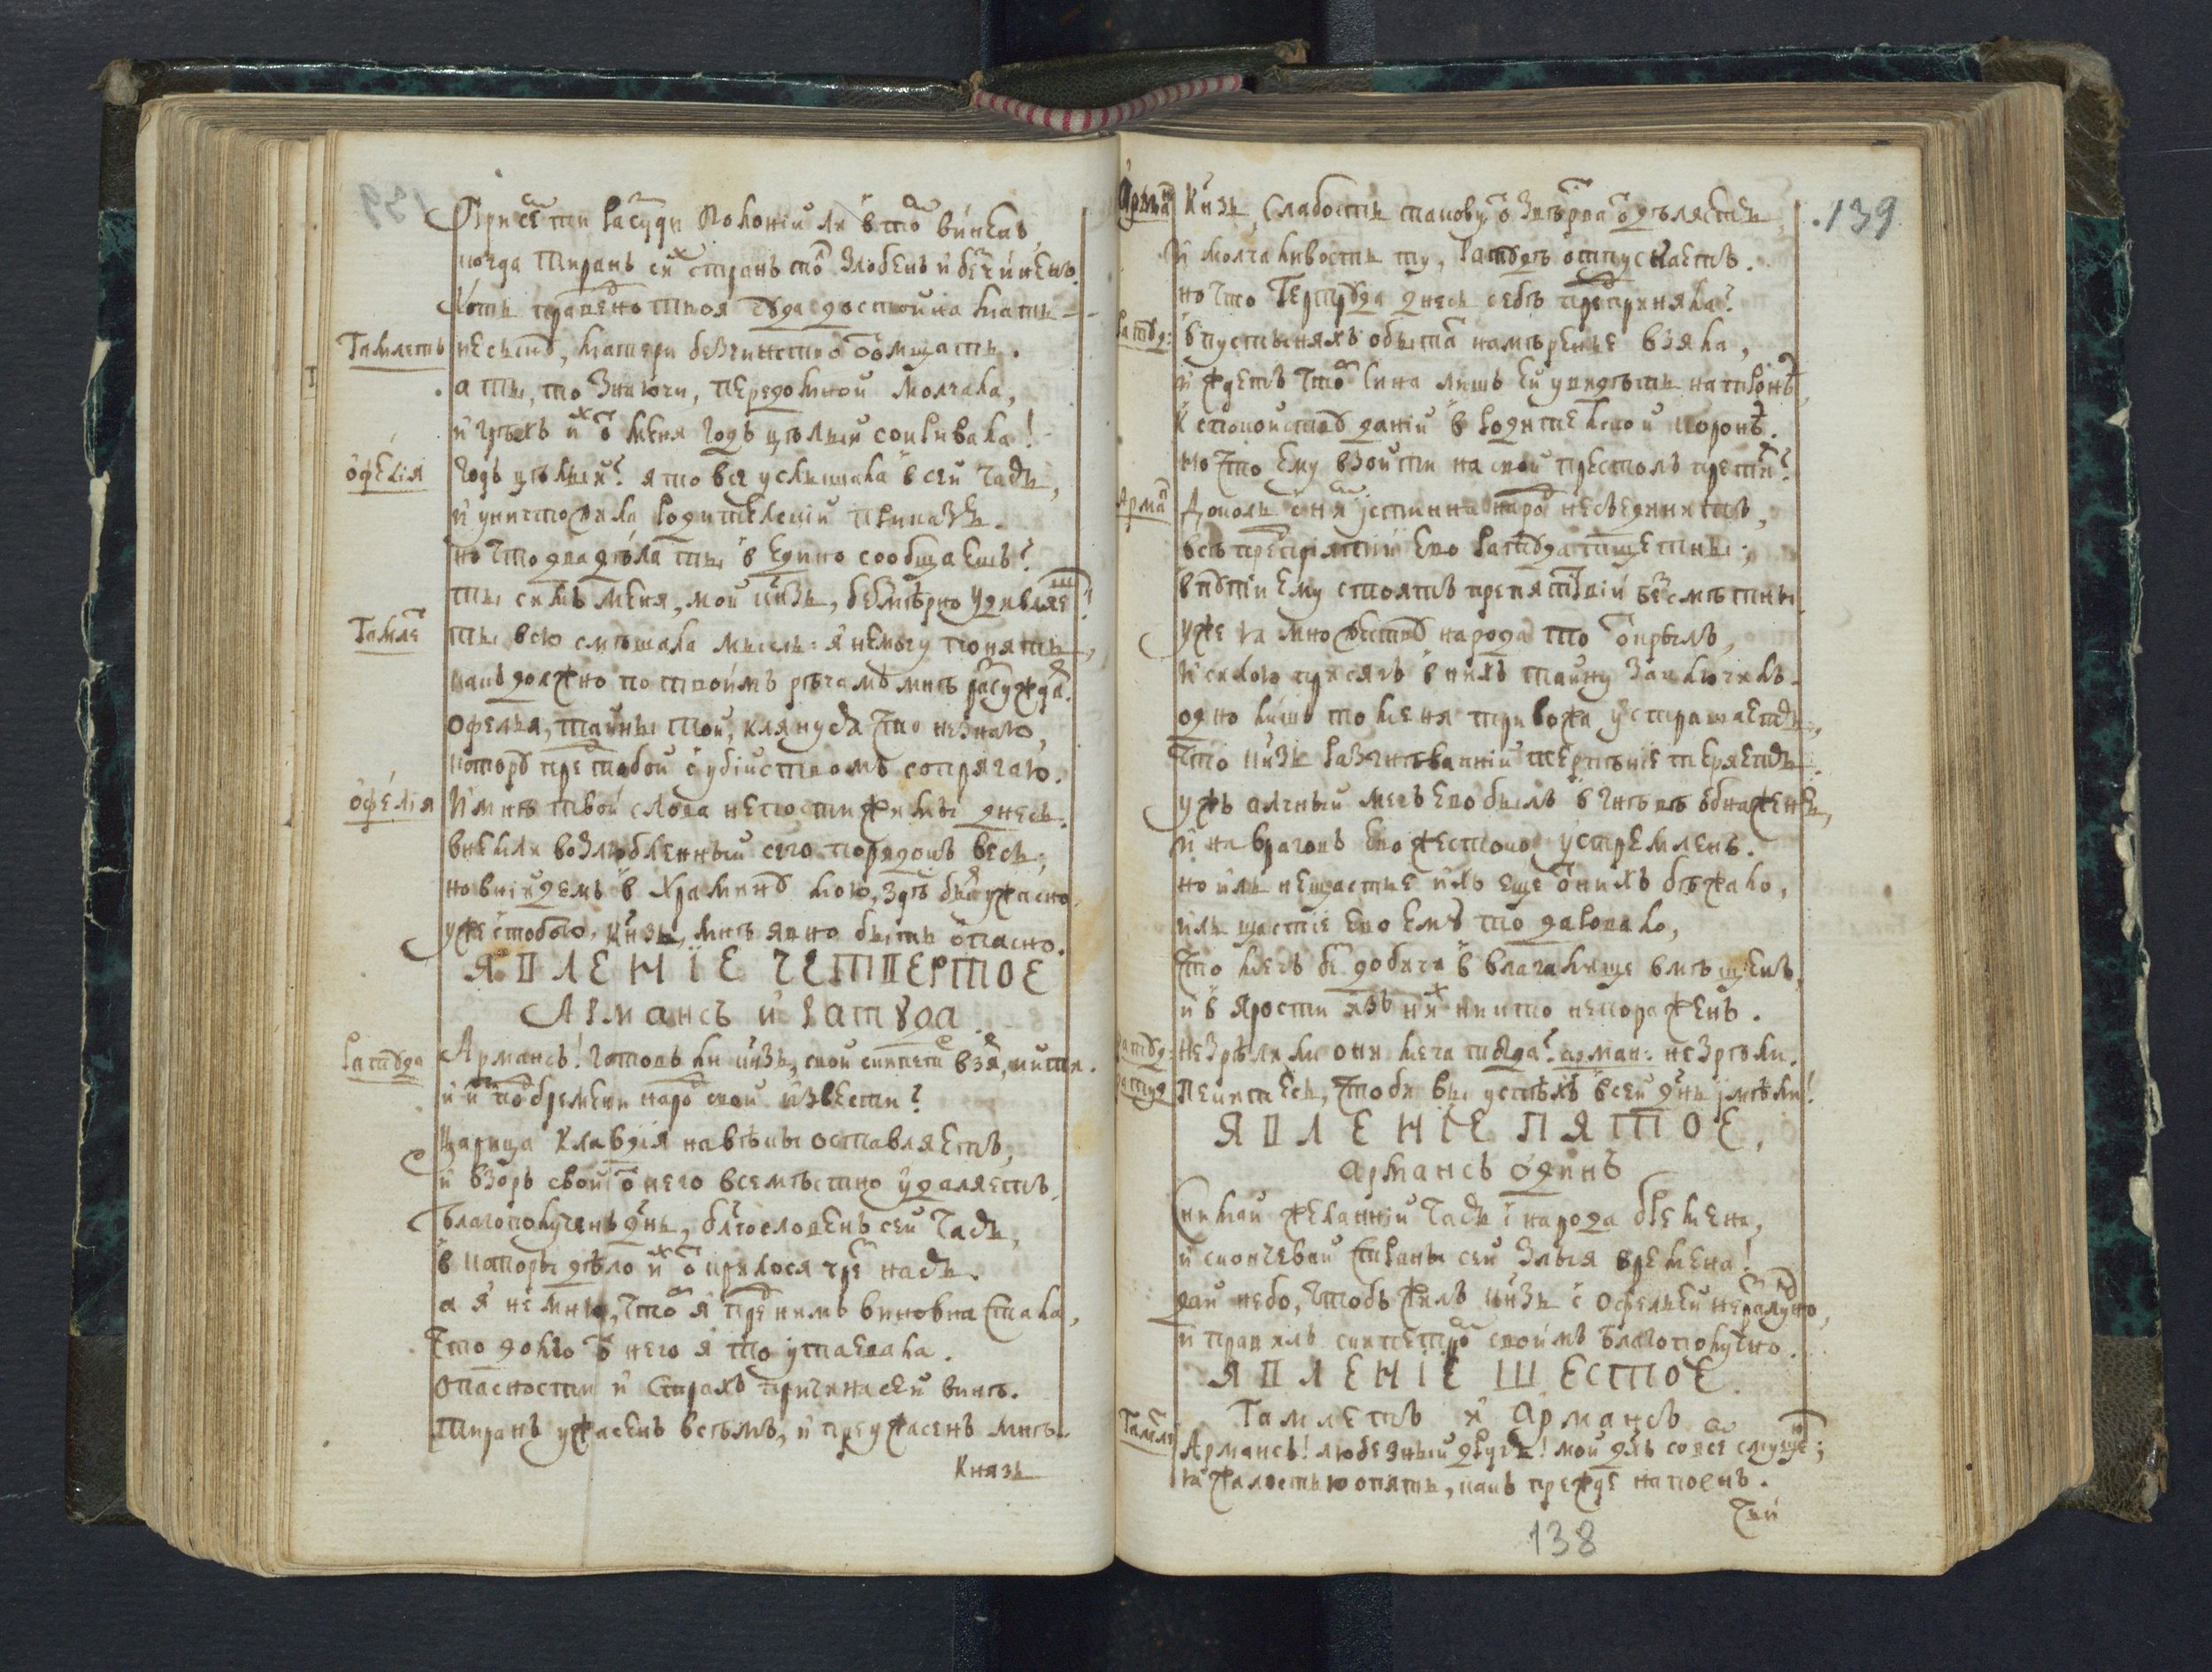 При сем ти рассуди Полоній ли в том винен,
когда тиранъ сих странъ толь злобенъ и безчиненъ.
Хоть праведно твоя буда достойна мать
Гамлетъ не смыслъ, матери безчинство отомщать.
а ты, то знаючи, передо мной молчала,
и грѣхъ их от меня годъ цѣлый сокривала!
офелія Годъ цѣлый? я то все услышала в сей часъ,
и уничтожила родителскій приказъ.
но что два дѣла ты в едино сообщаешъ?
ты симъ меня, мой кнзь, безмѣрно удивляеш!
Гамле ты всю смѣшала мысль: я немогу понять,
какъ должно по твоимъ рѣчамъ мнѣ разсуждат.
Офелья, тайны той, клянусь что незнаю,
котору пред тобой с убійствомъ сопрягаю.
офелія И мнѣ твои слова непостижимы днесь.
внемли возлюбленный сего порядокъ весь;
но внійдемъ в храмину мою, здѣсь быт ужасно,
уже с тобою, кнзь, мнѣ явно быть опасно.
ЯВЛЕНІЕ ЧЕТВЕРТОЕ
Армансъ и Ратуда
Ратуда Армансъ! готовъ ли кнзь, свой скипетръ взят, итти
и из под бремени народ свой извести?
Царица Клавдія навѣки оставляетъ,
и взоръ свой от него всемѣстно удаляетъ.
Благополученъ днь, блгословенъ сей часъ,
в которы дѣло их открылося чрез насъ.
а я не мню, чтоб я пред нимъ виновна стала,
что долго от него я то утаевала.
Опасности и страхъ причина сей винѣ.
Тиранъ ужасенъ всѣмъ, и преужасенъ мнѣ.
Князь
Арман Кнзь, слабость такову от звѣрва отдѣляетъ,
и молчаливость ту, Ратудѣ отпускаетъ.
но что Гертруда днесь себѣ предприняла?
Ратуд: в пустыняхъ обитат намѣренье взяла,
и ждетъ чтоб сина лишь ей увидѣть на тронѣ,
к спокойству даній в родителской коронѣ.
но что ему взойти на свой престолъ претит?
Арман Доколь с ним истинна народ несъединитъ,
всѣ предпріятіи его Ратуда тщетны;
в пути ему стоятъ препятствій безсмѣтны.
уже та множеству народа то открылъ,
и силою присягъ в нихъ тайну заключилъ.
одно лишь то меня тривожа устрашаетъ,
что кнзь разгнѣванній терпѣніе теряетъ.
ужъ алчный мечъ его былъ в гнѣвѣ обнаженъ,
и на враговъ его жестоко устремленъ.
но иль нещастье ихъ еще от нихъ бѣжало,
иль щастіе его ему то даровало,
что мечъ без добичи в влагалище вмѣщенъ,
и в ярости изъ них никто непораженъ.
Ратуд: Незрѣли ли они меча тогда? арман: незрѣли.
Ратуд Пекитесь, чтоби вы успѣхъ в сей днь имѣли!
ЯВЛЕНІЕ ПЯТОЕ.
армансъ одинъ
Снимай желанній часъ с народа бремена,
и скончевай страны сей злыя времена!
дай небо, чтобъ жилъ кнзь с Офельей неразлучно,
и правилъ скипетромъ своимъ благополучно.
ЯВЛЕНІЕ ШЕСТОЕ
Гамлетъ и Армансъ
Гамле Армансъ! любезный другъ! мой дхъ совсем смущен;
та жалостью опять, какъ прежде напоенъ.
Чей
139
138